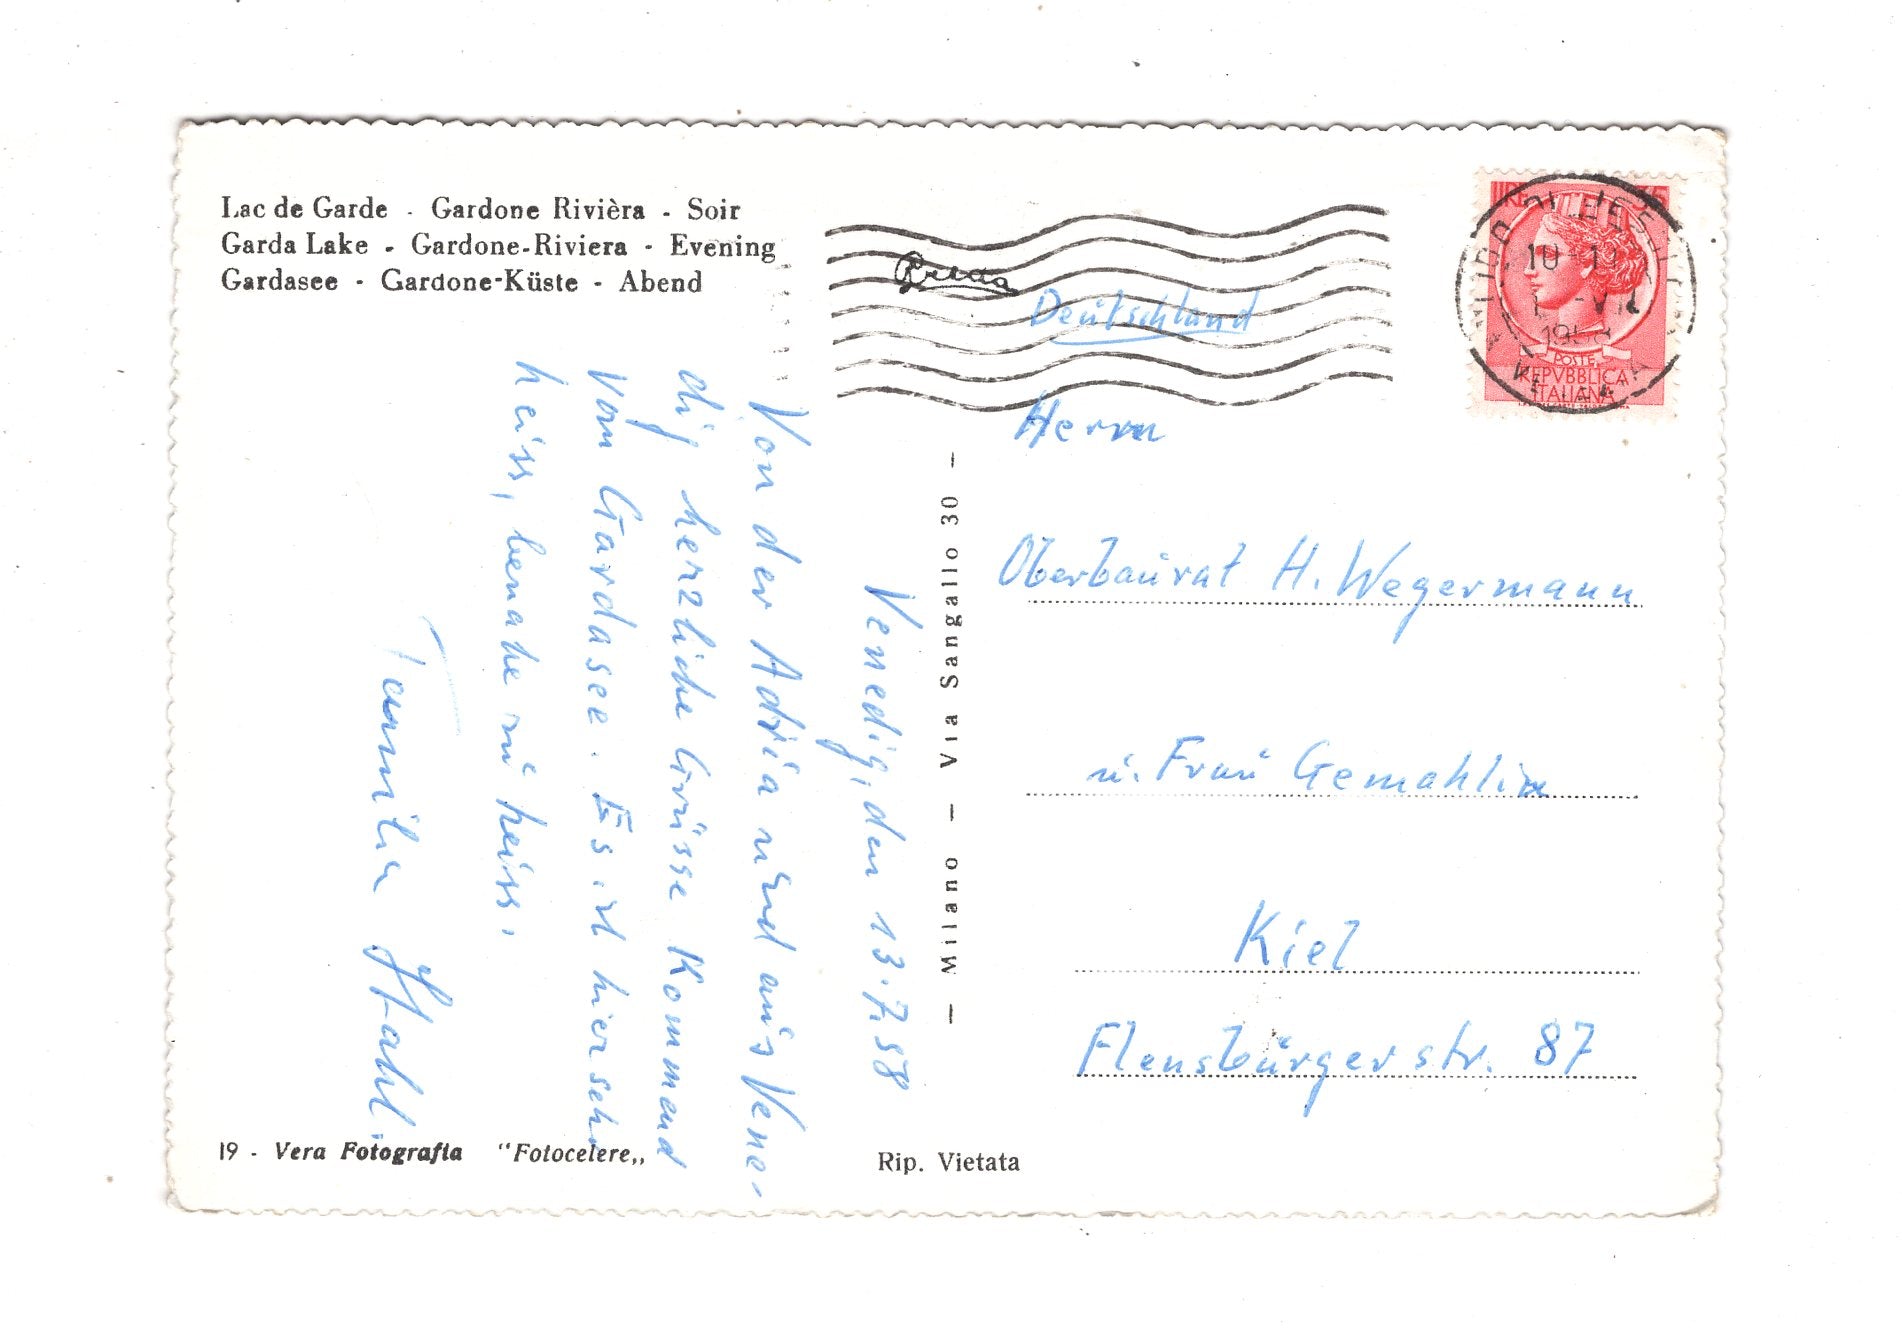 Lac de Garde - Gardone Rivièra - Soir
Garda Lake - Gardone-Riviera - Evening
Gardasee - Gardone-Küste - Abend
Venedig, den 13.7.58
Von der Adria und aus Vene-
dig herzliche Grüsse kommend
vom Gardasee. Es ist hier sehr
heiss, beinahe zu heiss.
Familie Stahl.
19 - Vera Fotografia "Fotocelere„
Rip. Vietata
— Milano — Via Sangallo 30 —
LIRE
POSTE
REPVBBLICA
ITALIANA
10-11
VII
1958
Deutschland
Herrn
Oberbaurat H. Wegermann
u. Frau Gemahlin
Kiel
Flensburgerstr. 87